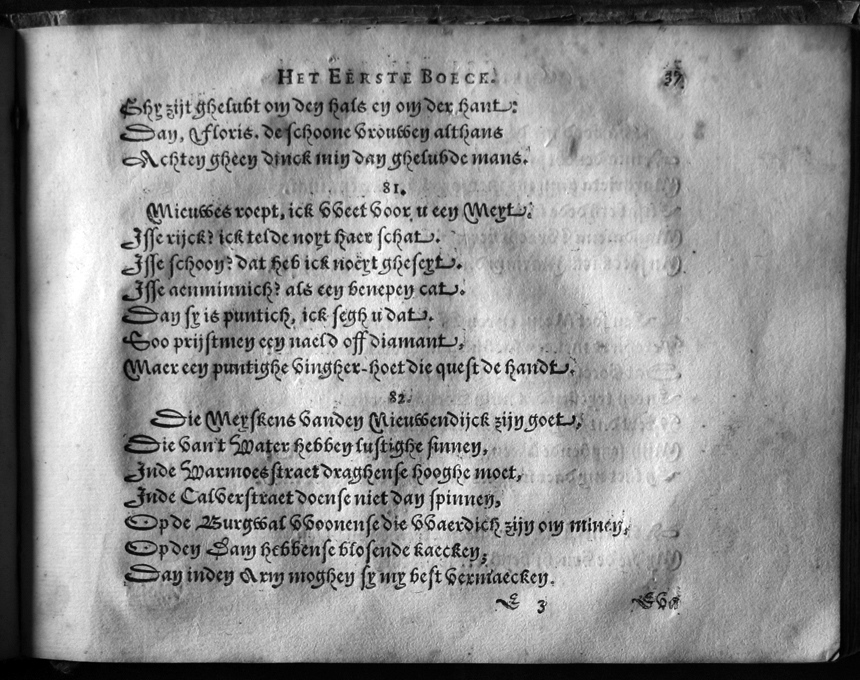 HET EERSTE BOECK. 37
Ghy zijt ghelubt om den hals en om der hant:
Dan, Floris. de schoone vrouwen althans
Achten gheen dinck min dan ghelubde mans.
81.
Mieuwes roept, ick weet voor u een Meyt.
Isse rijck? ick telde noyt haer schat.
Isse schoon? dat heb ick noeyt gheseyt.
Isse aenminnich? als een benepen cat.
Dan sy is puntich, ick segh u dat.
Soo prijstmen een naeld off diamant,
Maer een puntighe vingher-hoet die quest de handt.
82.
Die Meyskens vanden Nieuwendijck zijn goet,
Die van't Water hebben lustighe sinnen,
Inde Warmoesstraet draghense hooghe moet,
Inde Calverstraet doense niet dan spinnen,
Op de Burgwal woonense die waerdich zijn om minen,
Op den Dam hebbense blosende kaecken,
Dan inden Arm moghen sy my best vermaecken.
E 3